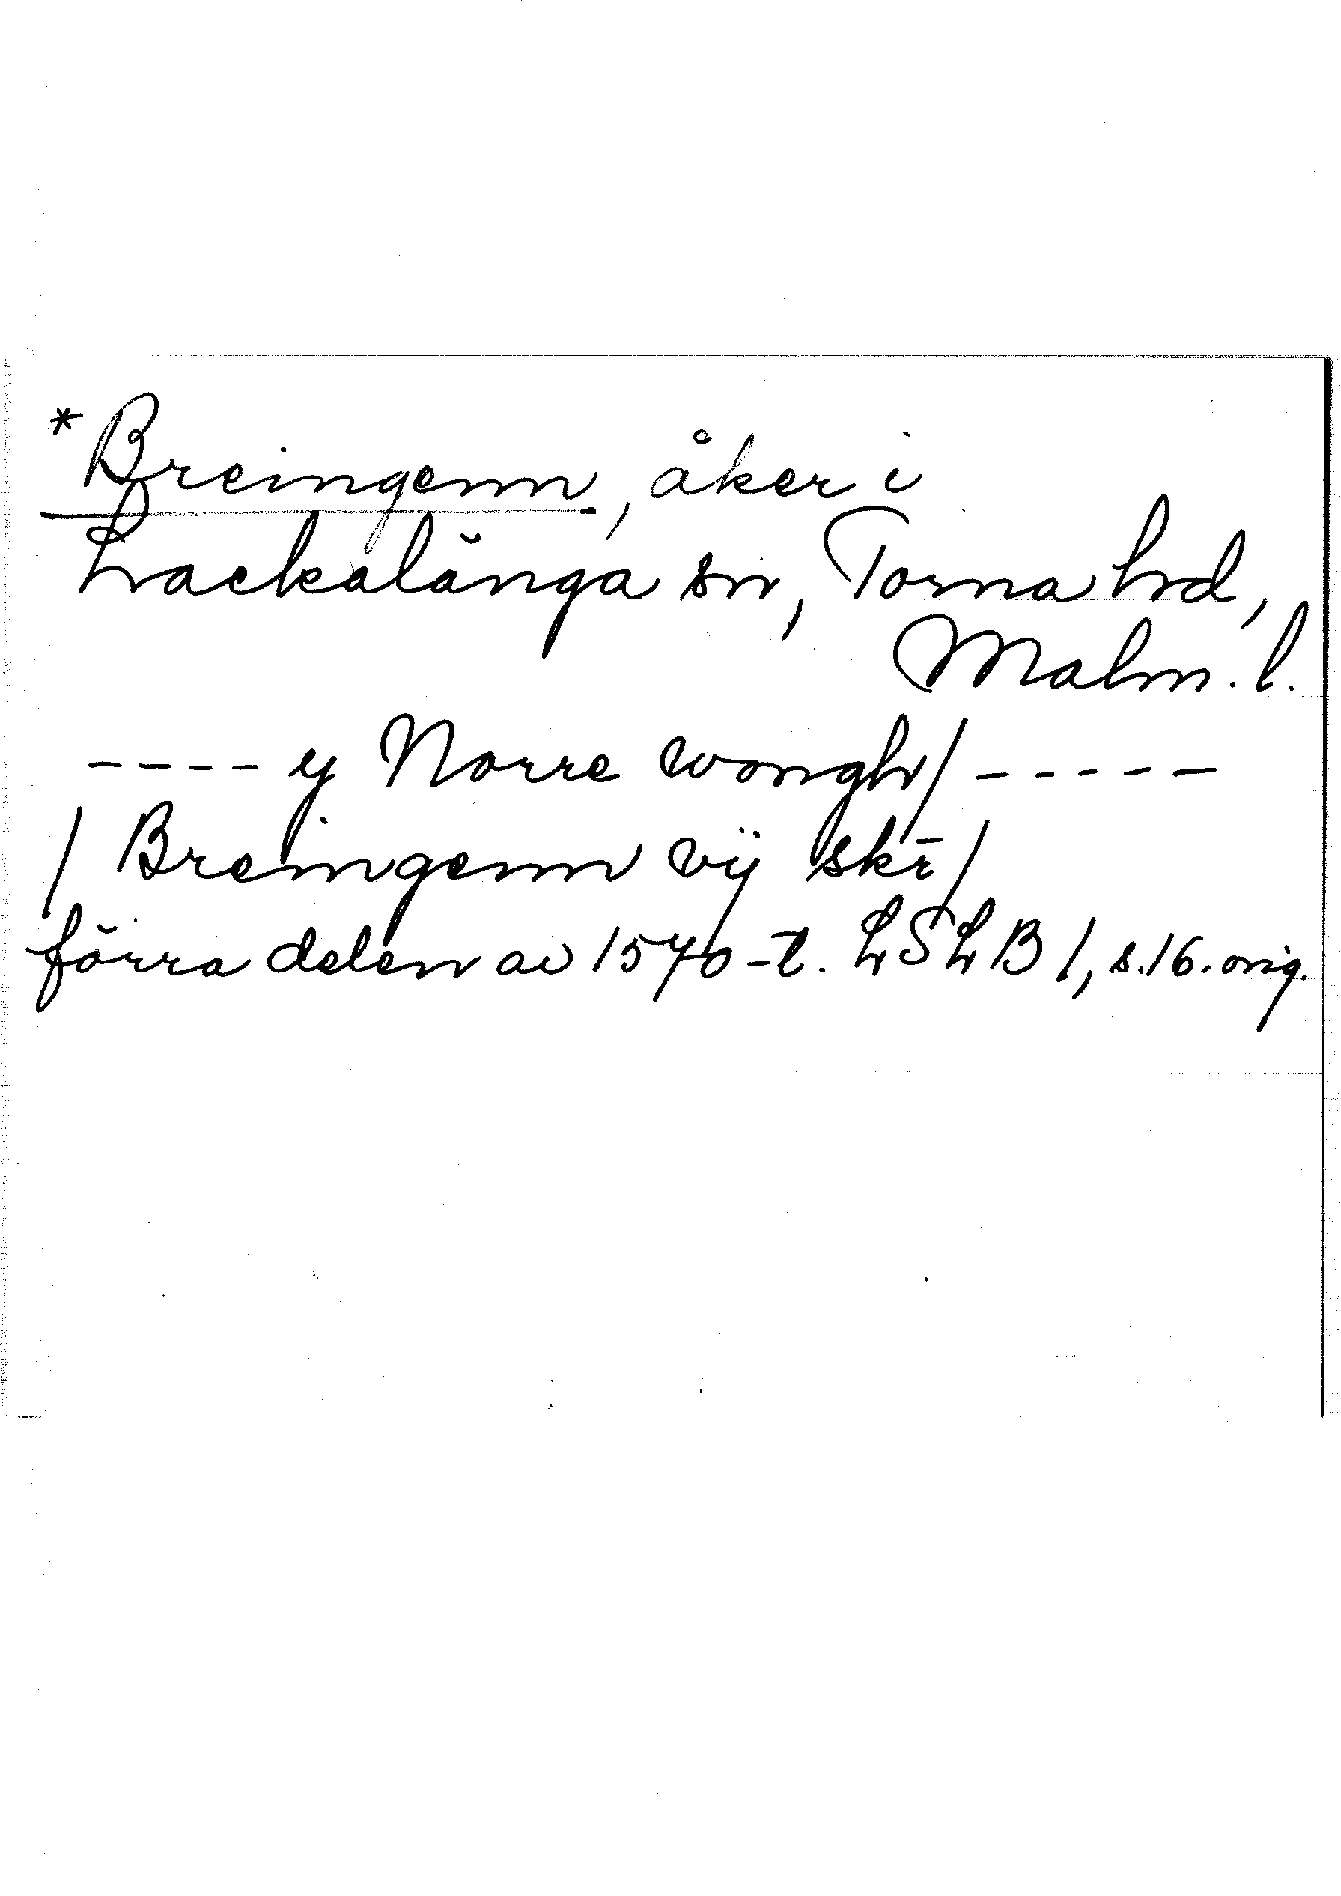 *Breingenn, åker i
Lackalänga sn, Torna hrd,
Malm. l.
---- y Norre wongh/ -----
/ Breingenn vij skr̄/
förra delen av 1570-t. LSLB 1, s.16. orig.